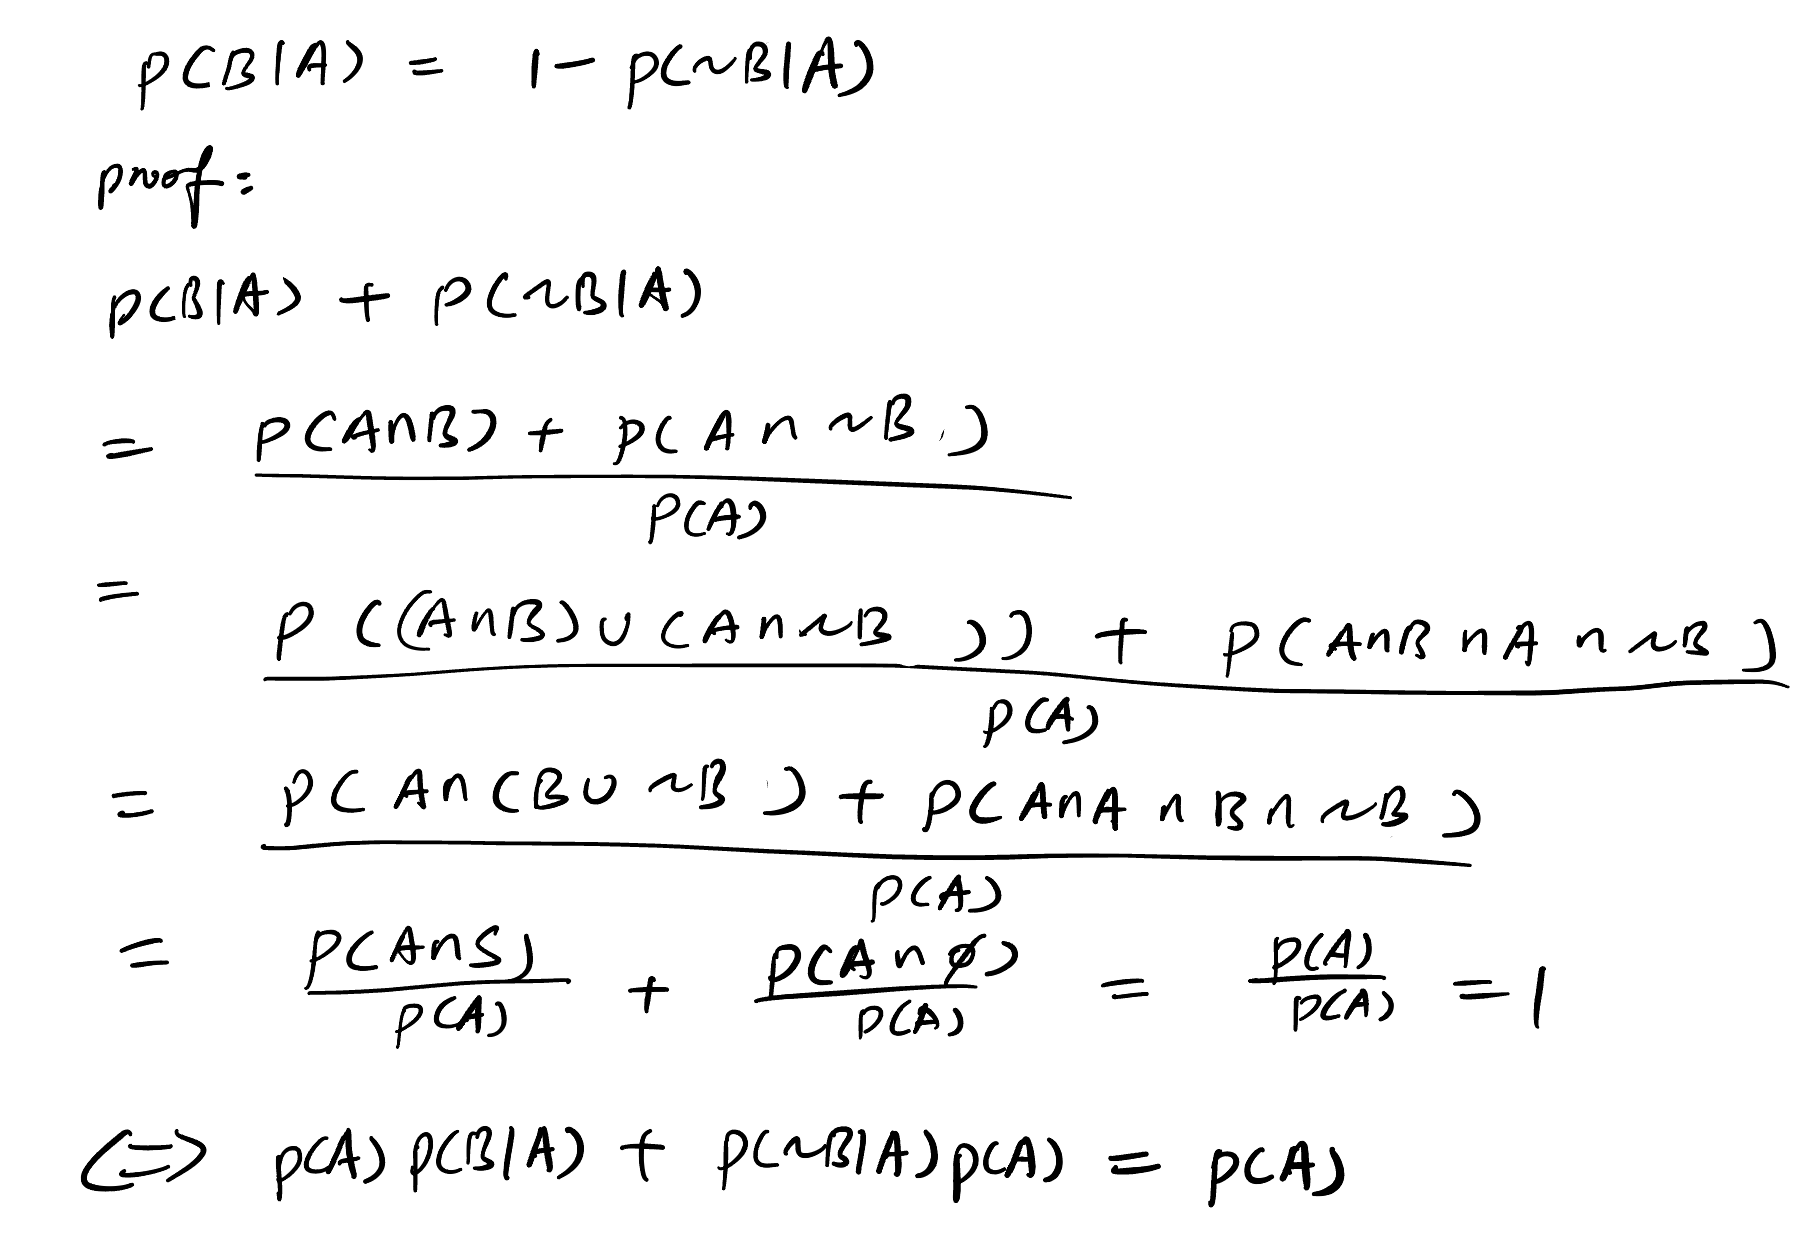 P(B|A) = 1 - P(~B|A)
proof:
P(B|A) + P(~B|A)
= P(A∩B) + P(A∩~B)
P(A)
= P((A∩B)∪(A∩~B)) + P(A∩B∩A∩~B)
P(A)
= P(A∩(B∪~B) + P(A∩A∩B∩~B)
P(A)
= P(A∩S) / P(A) + P(A∩ø) / P(A) = P(A) / P(A) = 1
<=> P(A) P(B|A) + P(~B|A) P(A) = P(A)